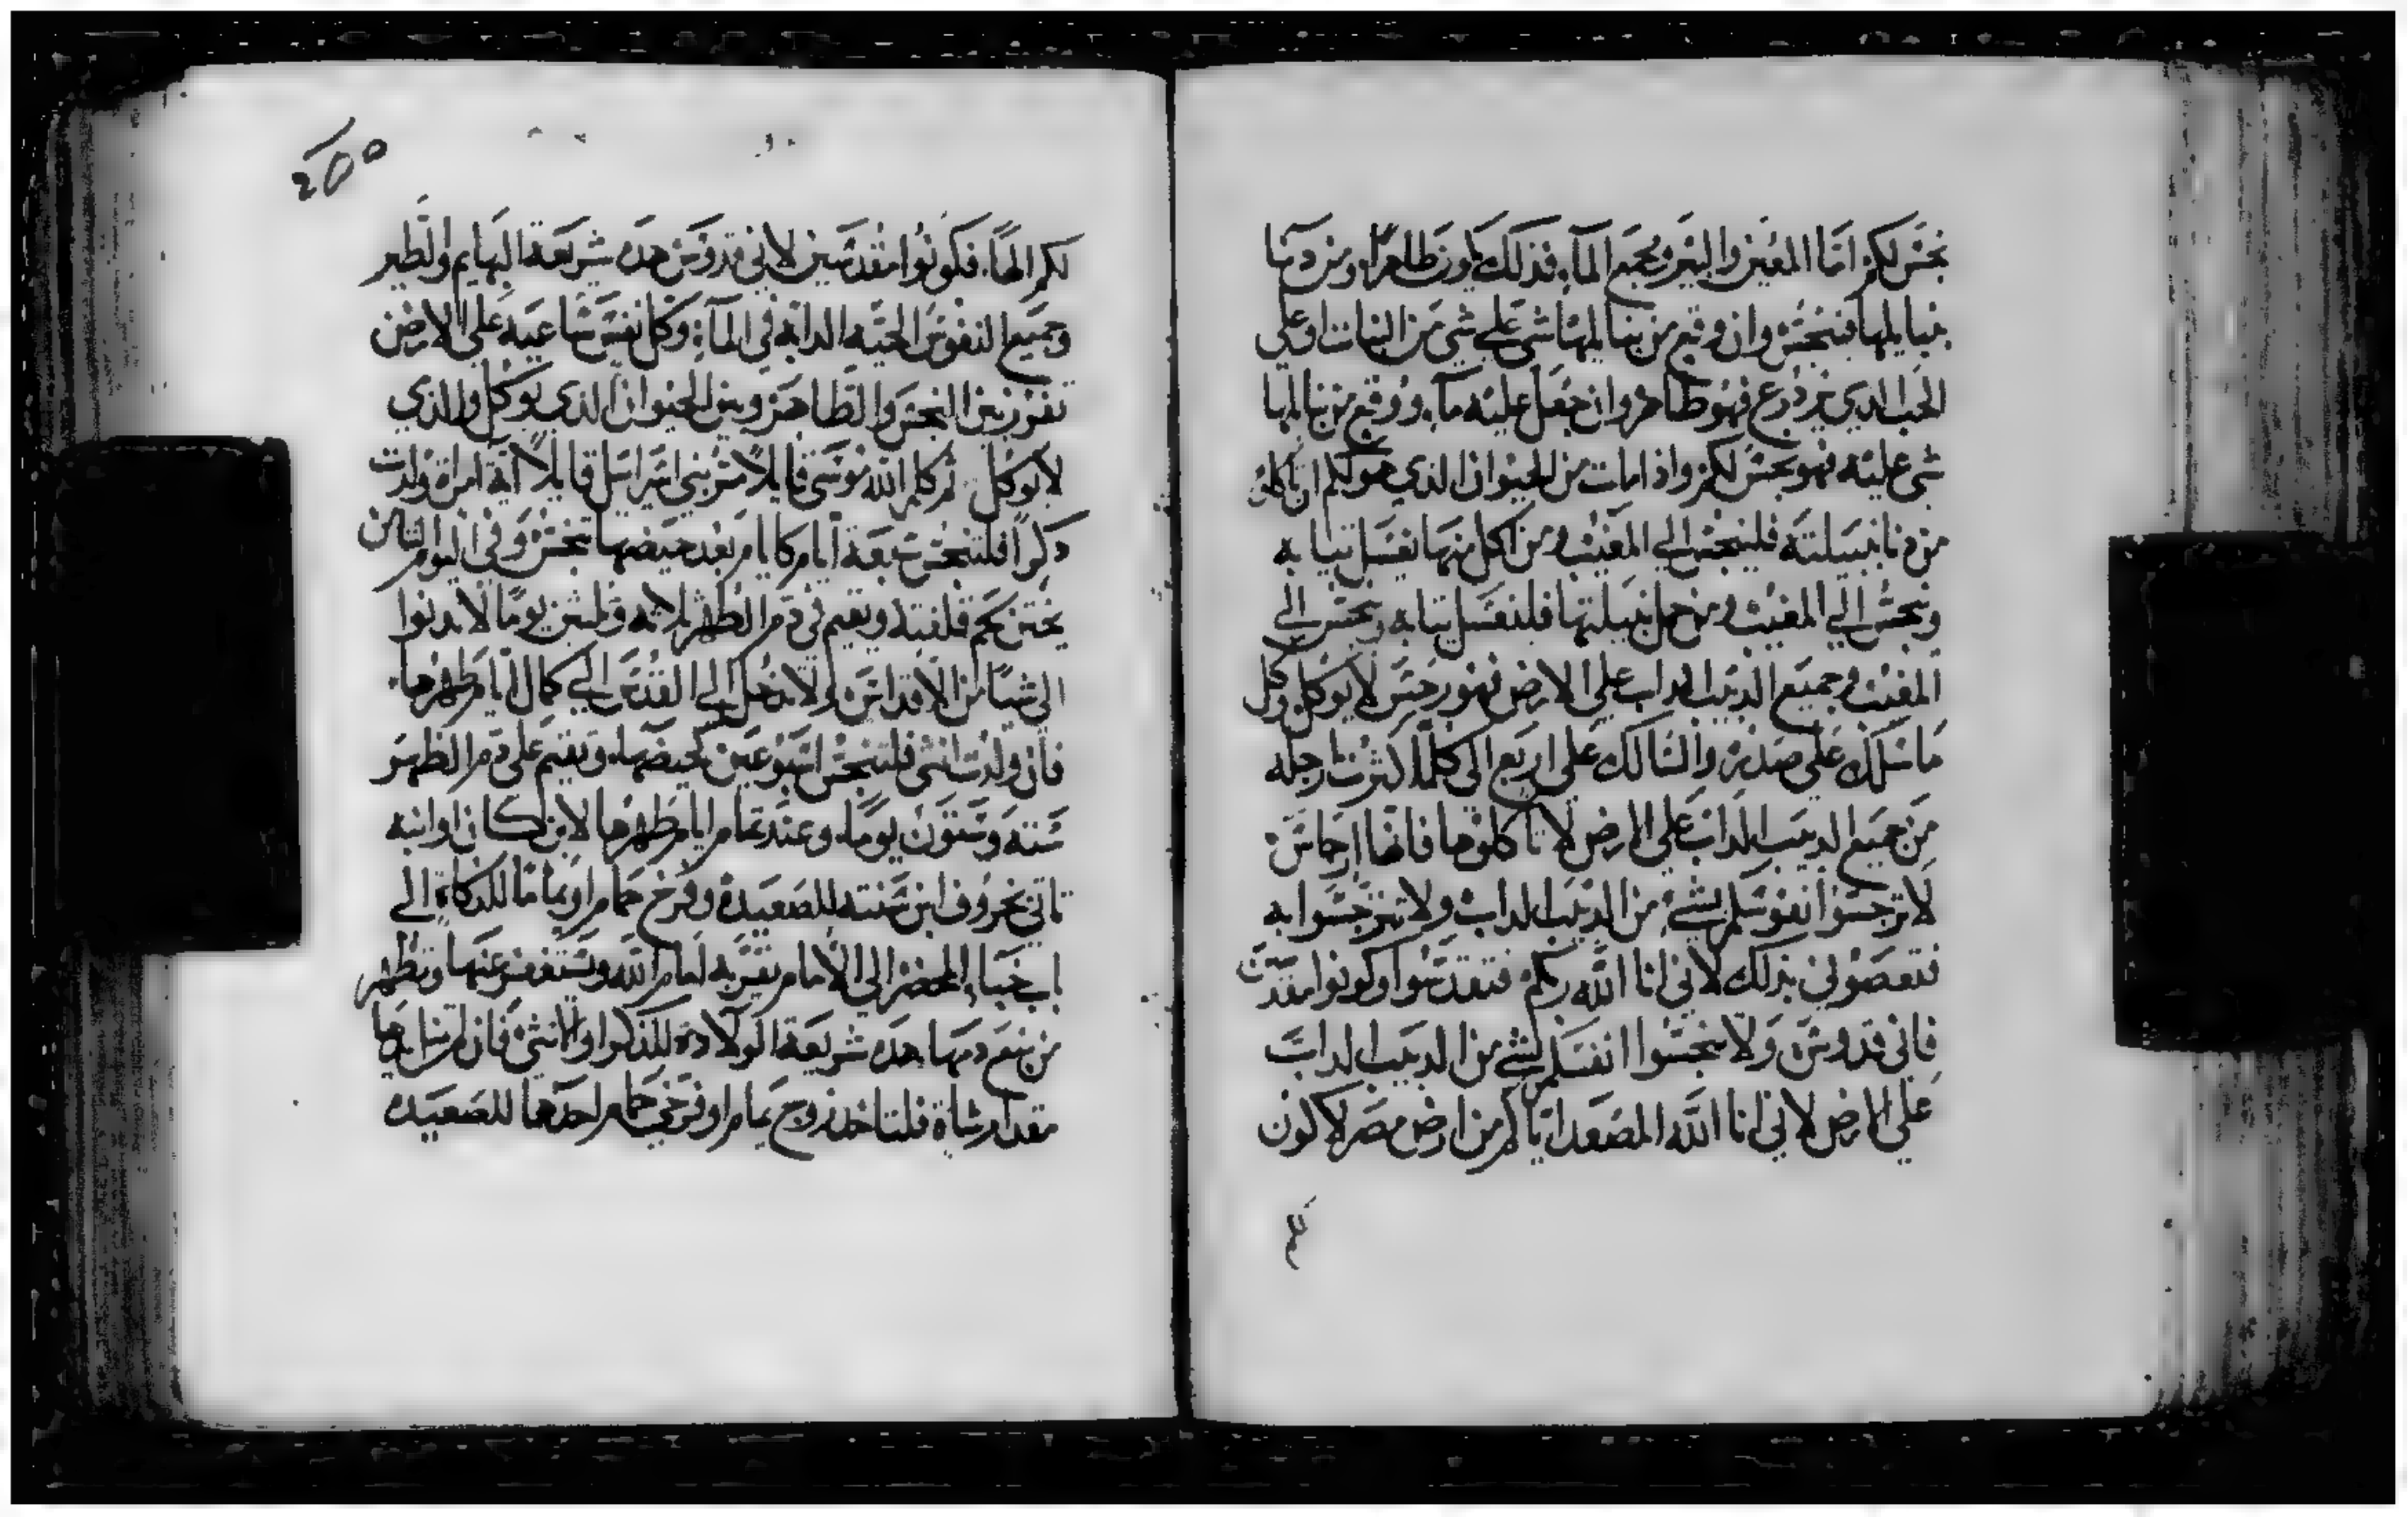 نجس لكم اما المعين والبير ومجمع المآء فذلك يكون طاهرًا ومن دنا
بنبايلها فتنجس وان وقع من نبايلها شي علي شي من النبات او علي
الحب الدي يزدرع فهو طاهر وان جعل عليه مآء ووقع من نبايلها
شي عليه فهو نجس لكم واذا مات من الحيوان الذي هو لكم ان تاكلوه
من دنا بنبيلته فلينجس الي المغيب ومن اكل منها يغسل تيابه
وينجس الي المغيب ومن حمل نبيلتها فليغسل تيابه وينجس الي
المغيب وجميع الدبيب الداب علي الارض فهو رجس لا يوكل وكل
ما سلك علي صدره والسالك علي اربع الي كلما كثرت ارجله
من جميع الدبيب الداب علي الارض لا تاكلوها فانها ارجاس
لا ترجسوا نفوسكم بشيء من الدبيب الداب ولا تترجسوا به
فتعصوني بذلك لاني انا الله ربكم فتقدسوا وكونوا مقدسين
فاني قدوس ولا تنجسوا انفسكم بشي من الدبيب الداب
علي الارض لاني انا الله المصعد اياكم من ارض مصر لاكون
لكم
200
لكم الهاً فكونوا مقدسين لاني قدوس هده شريعة البهايم والطير
وجميع النفوس الحيه الدابه في المآء وكل نفس ساعيه علي الارض
تفرز بين النجس والطاهر وبين الحيوان الذي يوكل والذي
لا يوكل ثم كلم الله موسى قايلاً مر بني اسراييل قايلاً اية امراة ولدت
ذكراً فلتنجس سبعة ايام كايام بعد حيضها تنجس وفي اليوم الثامن
يختن لحم قلفته وتقيم في دم الطهر ثلاثه وثلثين يومًا لا تدنوا
الي شياً من الاقداس ولا تدخل الي القدس الي كمال ايام طهرها
فان ولدت انثى فلتنجس اسبوعين كحيضها وتقيم على دم الطهر
سته وستون يومًا وعند تمام ايام طهرها لابن كان او ابنه
تاتي بخروف ابن سنته للصعيدة وفرخ حمام او يمامًا للذكاة الي
باب خباء المحضر الي الامام يقربه امام الله ويستغفر عنها وتطهر
من نبع دمها هده شريعة الولادة للذكر او الانثى فان لم تنل يدها
مقدار شاة فلتاخد زوج يمام او فرخي حمام احدهما للصعيده